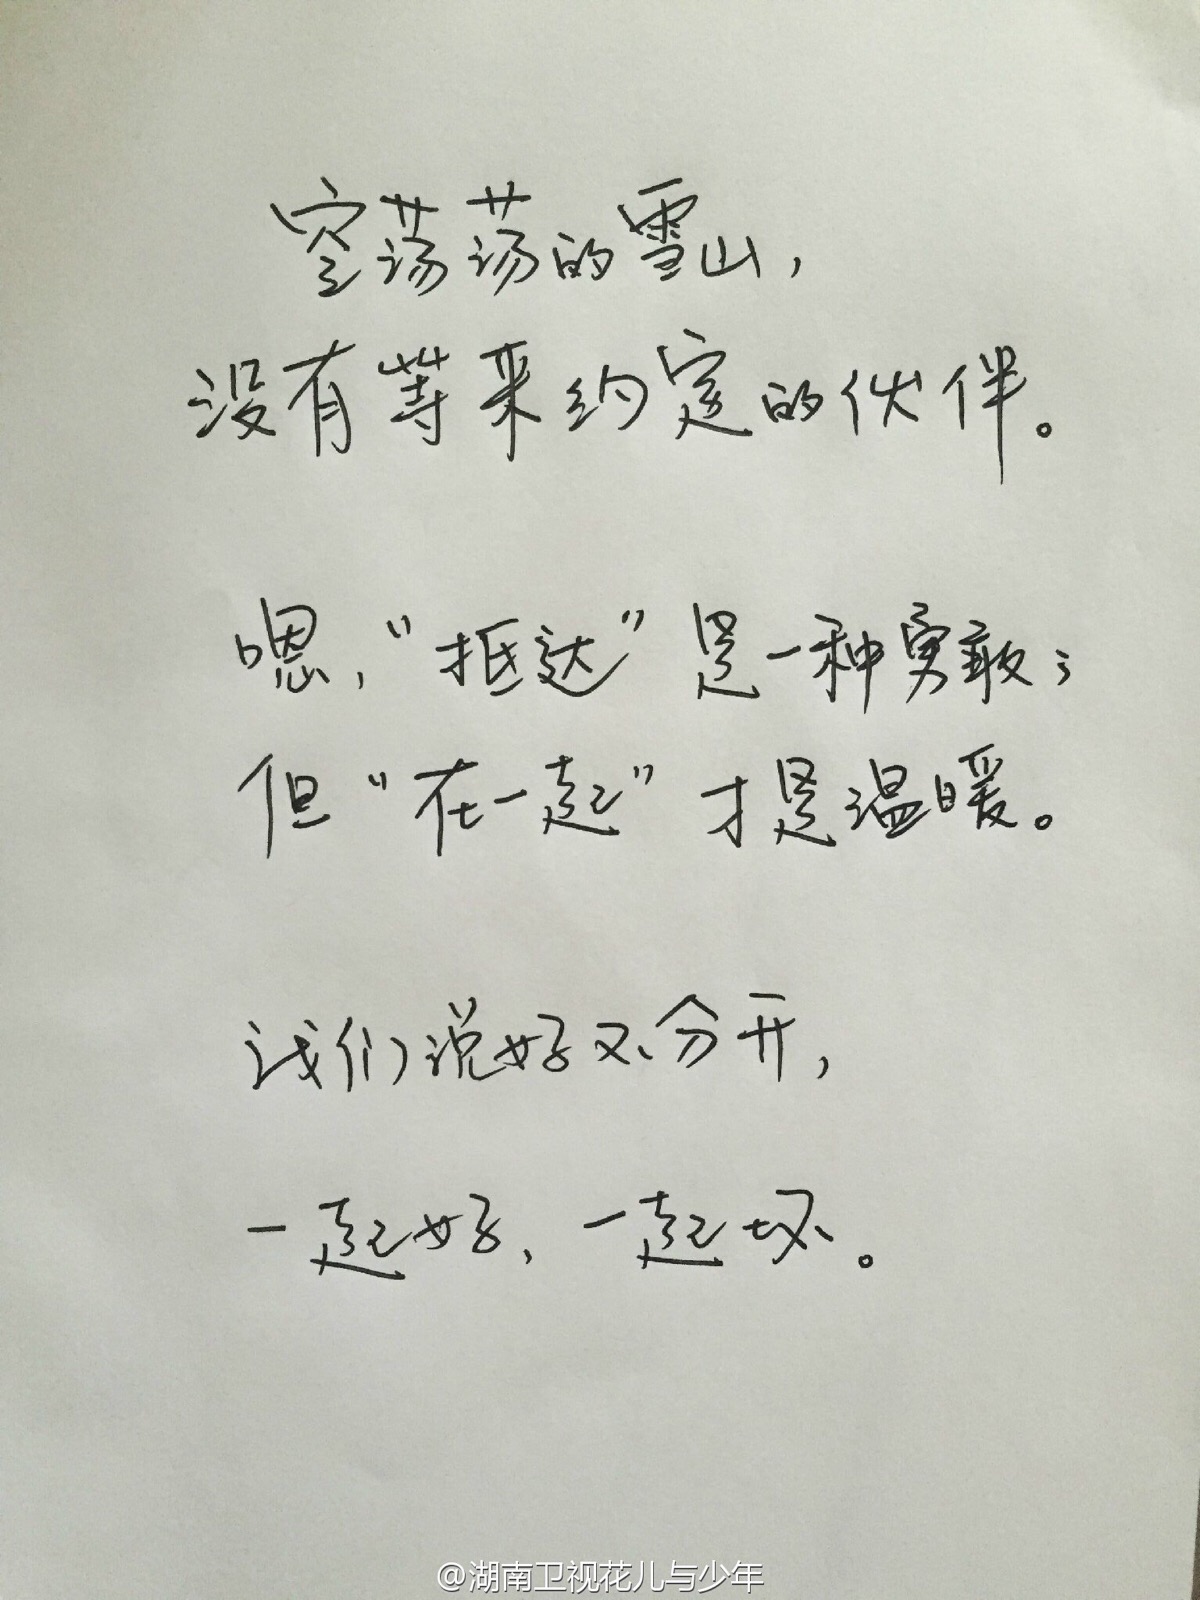 空荡荡的雪山，
没有等来约定的伙伴。
嗯，“抵达”是一种勇敢；
但“在一起”才是温暖。
我们说好不分开，
一起好、一起坏。
@湖南卫视花儿与少年